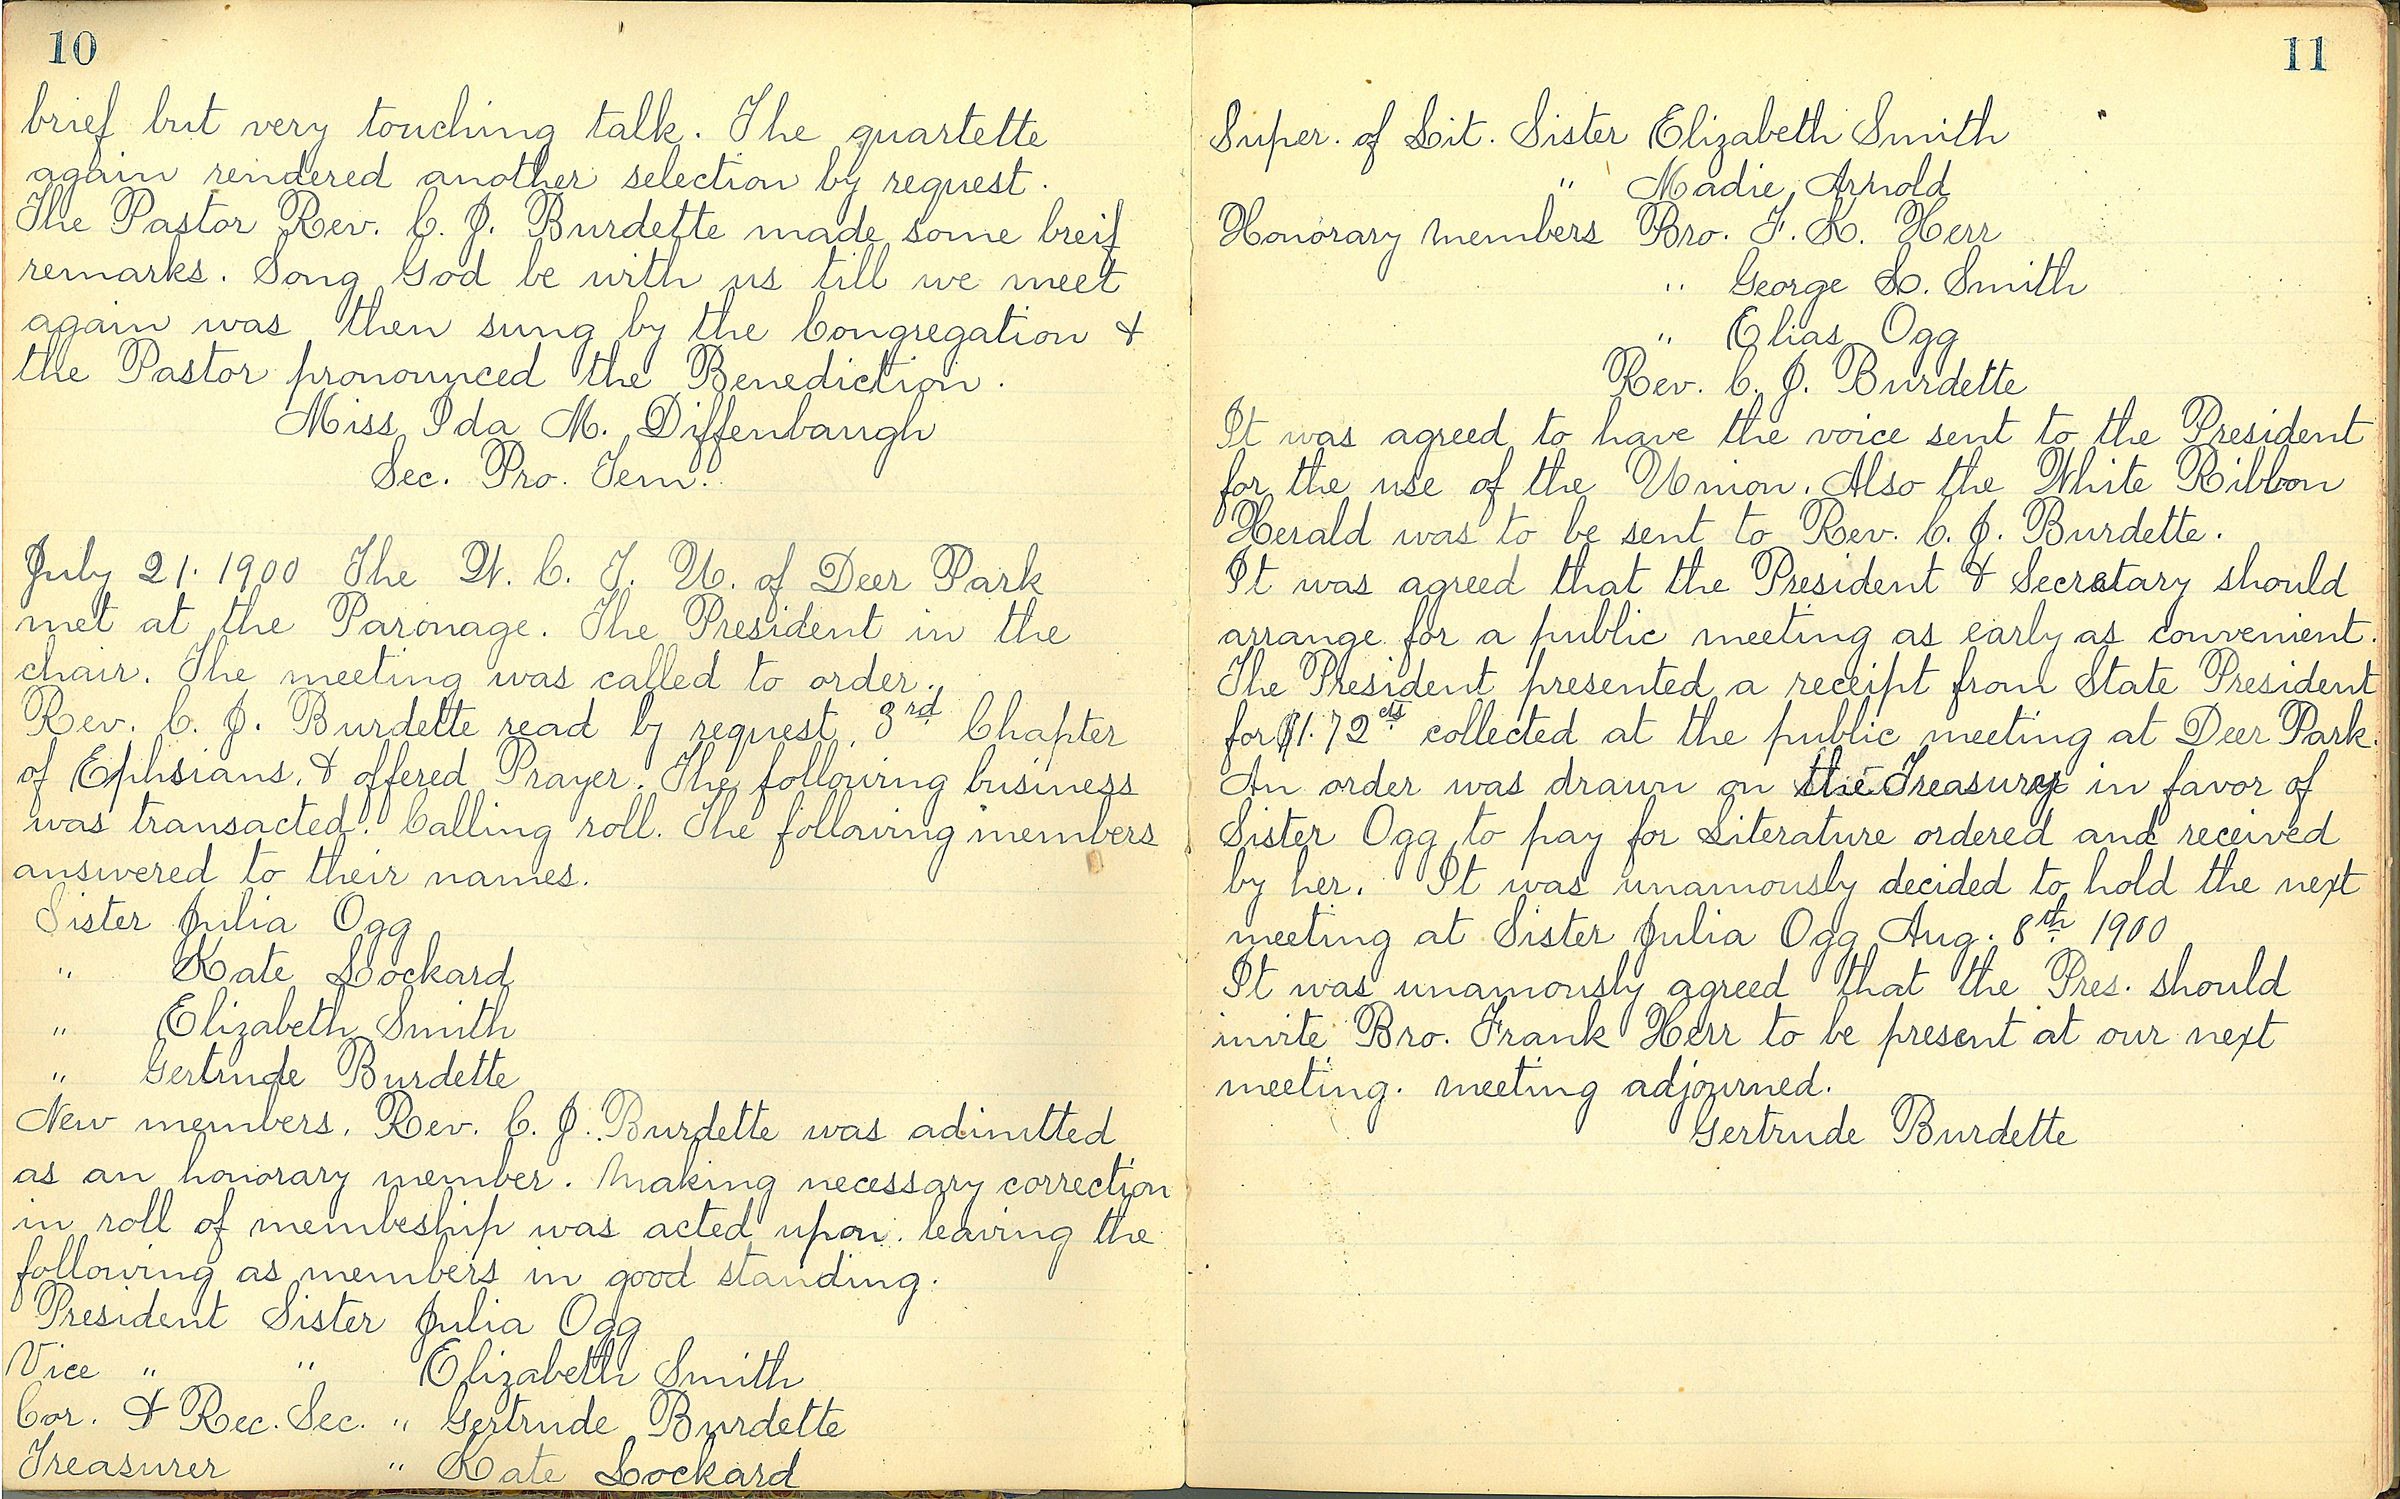 10
brief but very touching talk. The quartette
again rendered another selection by request.
The Pastor Rev. C. J. Burdette made some breif
remarks. Song God be with us till we meet
again was then sung by the Congregation &
the Pastor pronounced the Benediction.
Miss Ida M. Diffenbaugh
Sec. Pro. Tem.
July 21. 1900 The W. C. T. U. of Deer Park
met at the Paronage. The President in the
chair. The meeting was called to order.
Rev. C. J. Burdette read by request, 3rd Chapter
of Ephsians, & offered Prayer. The following business
was transacted. Calling roll. The following members
answered to their names.
Sister Julia Ogg
" Kate Lockard
" Elizabeth Smith
" Gertrude Burdette
New members. Rev. C. J. Burdette was adimtted
as an honorary member. Making necessary correction
in roll of membeship was acted upon. leaving the
following as members in good standing.
President Sister Julia Ogg
Vice " " Elizabeth Smith
Cor. & Rec. Sec. " Gertrude Burdette
Treasurer " Kate Lockard
11
Super. of Lit. Sister Elizabeth Smith
" Madie Arnold
Honorary Members Bro. F. K. Herr
" George L. Smith
" Elias Ogg
Rev. C. J. Burdette
It was agreed to have the voice sent to the President
for the use of the Union. Also the White Ribbon
Herald was to be sent to Rev. C. J. Burdette.
It was agreed that the President & Secretary should
arrange for a public meeting as early as convenient.
The President presented a receipt from State President
for $1.72cts collected at the public meeting at Deer Park.
An order was drawn on the Treasurer in favor of
Sister Ogg to pay for Literature ordered and received
by her. It was unamously decided to hold the next
meeting at Sister Julia Ogg Aug. 8th 1900
It was unamously agreed that the Pres. should
invite Bro. Frank Herr to be present at our next
meeting. Meeting adjourned.
Gertrude Burdette